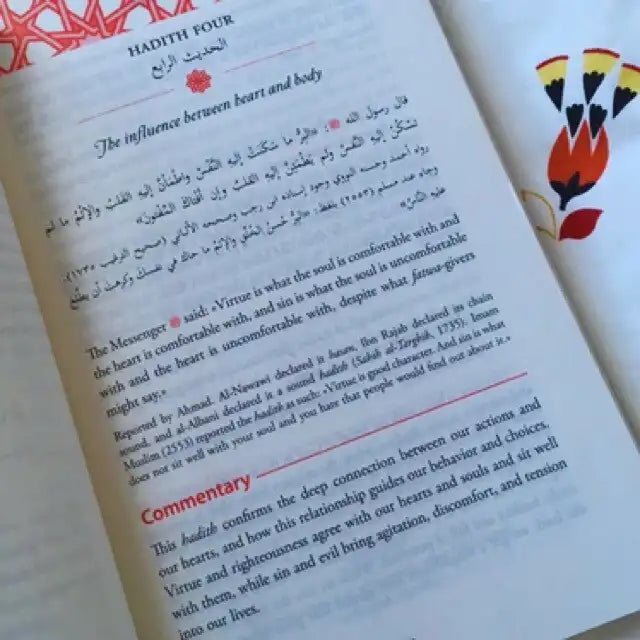 HADITH FOUR
الحديث الرابع
The influence between heart and body
قال رسول الله ﷺ: «البِرُّ ما سَكَنَتْ إليه النَّفْسُ واطْمَأَنَّ إليه القَلْبُ والإثْمُ ما لم
تَسْكُنْ إليه النَّفْسُ ولم يَطْمَئِنَّ إليه القَلْبُ وإن أَفْتَاكَ المُفْتُونَ»
رواه أحمد وحسنه النووي وجود إسناده ابن رجب وصححه الألباني (صحيح الترغيب ١٧٣٥).
وجاء عند مسلم (٢٥٥٣) بلفظ: «البِرُّ حُسْنُ الخُلُقِ والإثْمُ ما حاك في نفسك وكرهت أن يطلع
عليه الناس»
The Messenger ﷺ said: «Virtue is what the soul is comfortable with and
the heart is comfortable with, and sin is what the soul is uncomfortable
with and the heart is uncomfortable with, despite what fatawa-givers
might say.»
Reported by Ahmad. Al-Nawawi declared is hasan, Ibn Rajab declared its chain
sound, and al-Albani declared is a sound hadith (Sahih al-Targhib, 1735). Imam
Muslim (2553) reported the hadith as such: «Virtue is good character. And sin is what
does not sit well with your soul and you hate that people would find out about it.»
Commentary
This hadith confirms the deep connection between our actions and
our hearts, and how this relationship guides our behavior and choices.
Virtue and righteousness agree with our hearts and souls and sir well
with them, while sin and evil bring agitation, discomfort, and tension
into our lives.